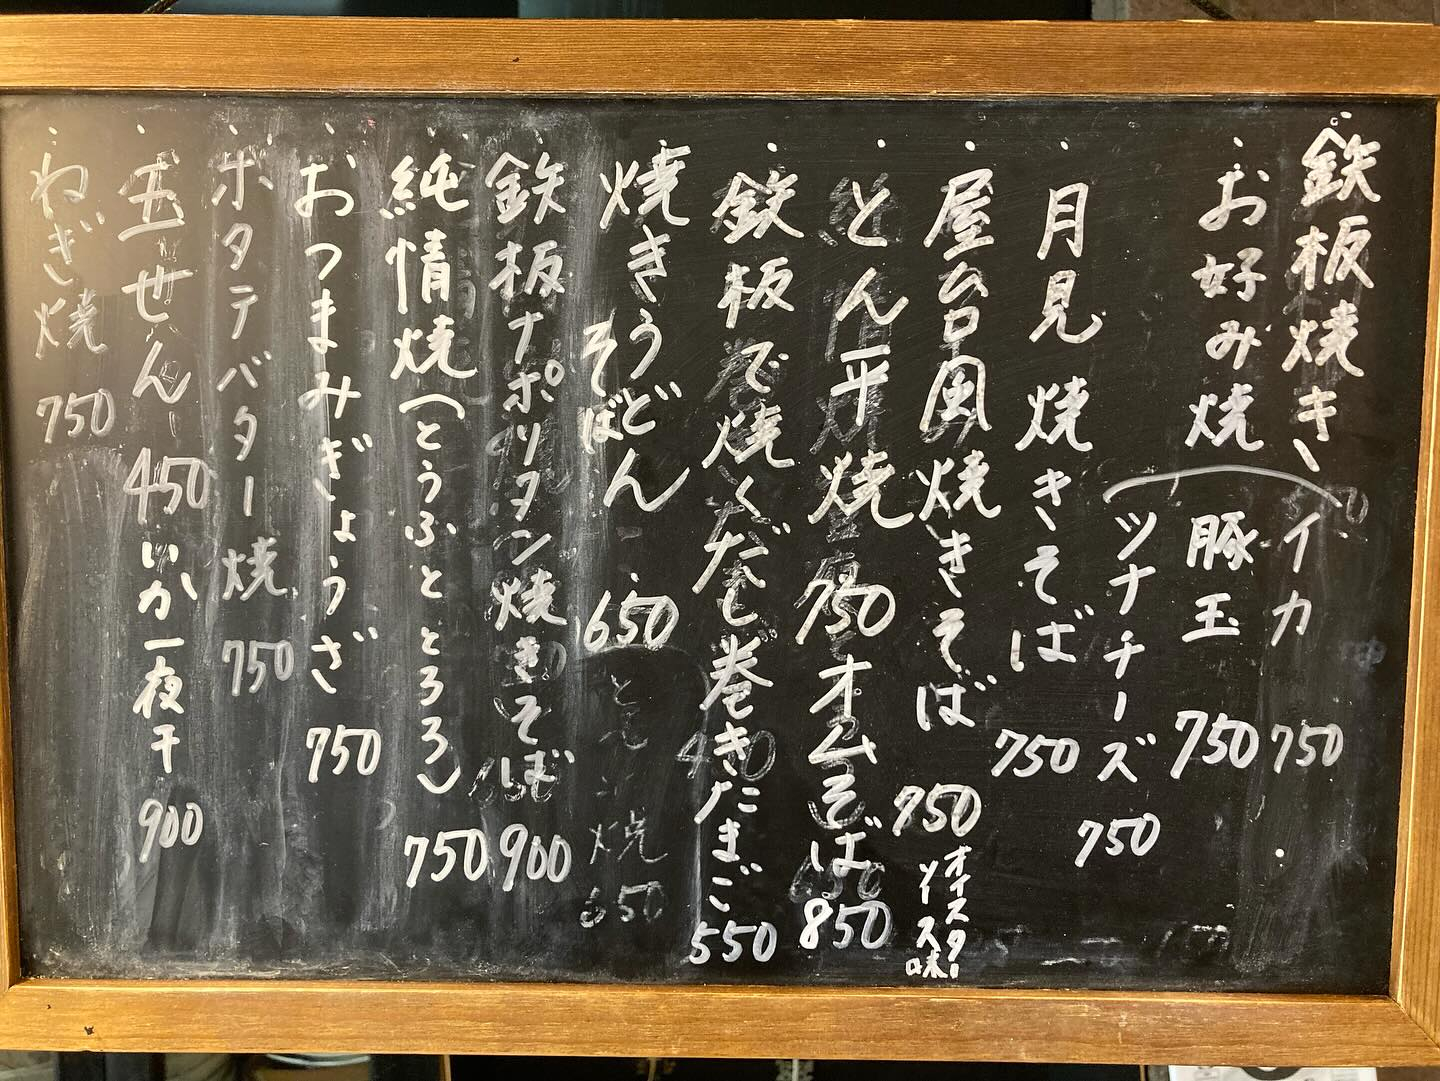 ・鉄板焼き、イカ 750
・お好み焼 豚玉 750
ツナチーズ 750
・月見 焼きそば 750
・屋台風焼きそば 750 オイスター
ソース味
・とん平焼 750 オムそば 850
・鉄板で焼くだし巻きたまご 550
・焼きうどん
そば 650
・鉄板ナポリタン焼きそば 900
・純情焼(とうふととろろ) 750
・おつまみぎょうざ 750
・ホタテバター焼 750
・玉せん 450 いか一夜干 900
・ねぎ焼 750